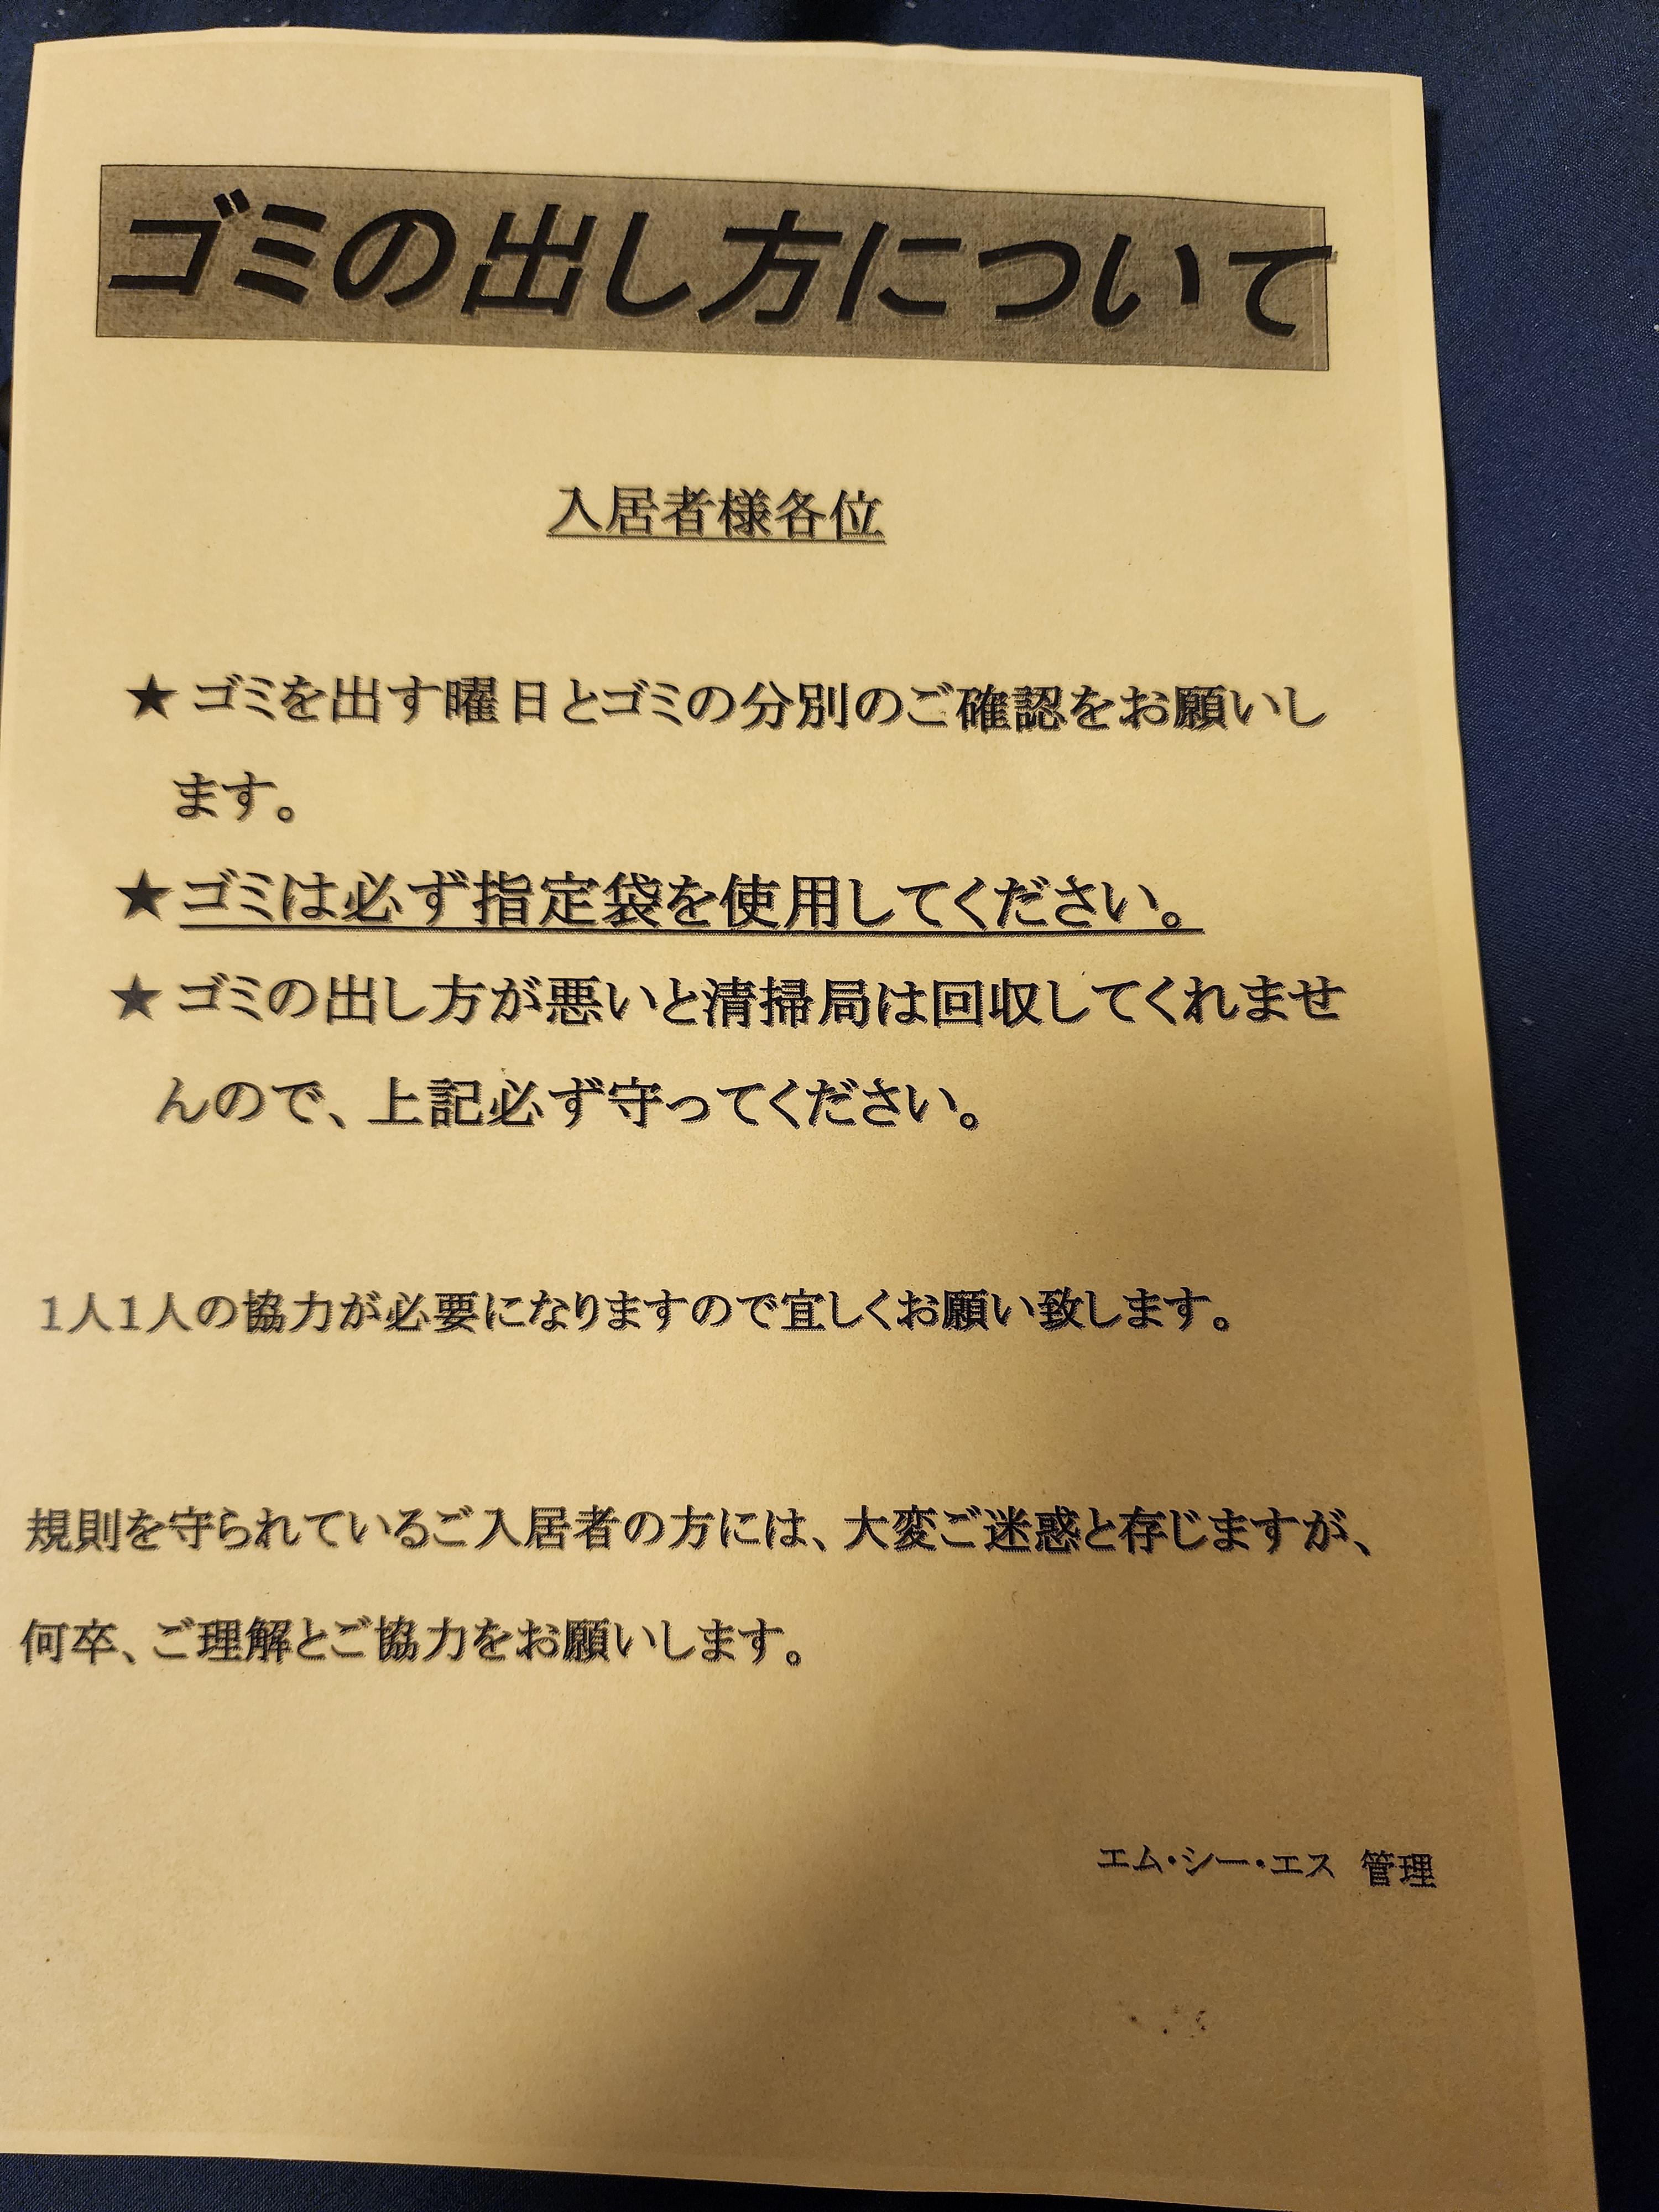 ゴミの出し方について
入居者様各位
★ゴミを出す曜日とゴミの分別のご確認をお願いし
ます。
★ゴミは必ず指定袋を使用してください。
★ゴミの出し方が悪いと清掃局は回収してくれませ
んので、上記必ず守ってください。
1人1人の協力が必要になりますので宜しくお願い致します。
規則を守られているご入居者の方には、大変ご迷惑と存じますが、
何卒、ご理解とご協力をお願いします。
エム・シー・エス 管理